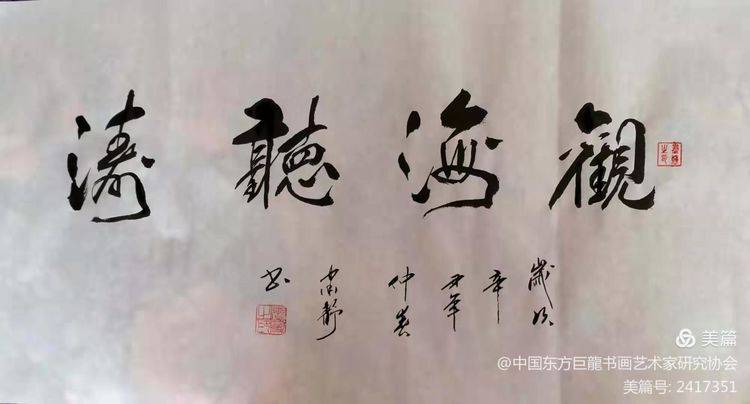 觀海聽濤
歲次
辛
丑年
仲春
書
美篇
@中国东方巨龍书画艺术家研究协会
美篇号: 2417351